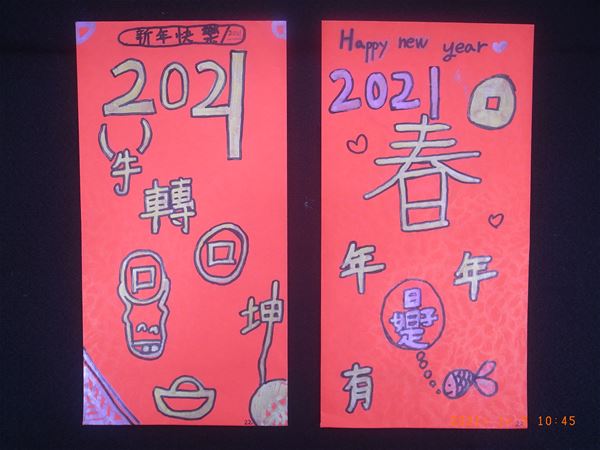 新年快樂
2021
牛
轉
坤
22
Happy new year
2021
春
年 年
有
10:45